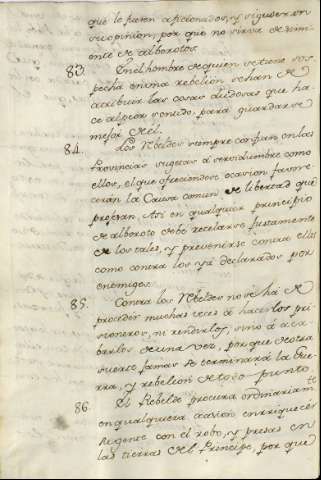 que le fueren aficionados, y siguieren
su opinion, por que no sirva de simi-
ente de alborotos.
83. En el hombre de quien se tiene sos-
pecha en una rebelion se han de
atribuir las cosas dudosas que ha-
ce al peor sentido, para guardarse
mejor de el.
84. Los Rebeldes siempre confian en las
Provincias sugetas á servidumbre como
ellos, el que ofreciendose ocasion favore-
ceran la Causa comun de libertad que
profesan. Asi en qualquier principio
de alboroto debe recelarse justamente
de los tales, y prevenirse contra ellos
como contra los yá declarados por
enemigos.
85. Contra los Rebeldes no se há de
proceder muchas veces á hacerlos pri-
sioneros, ni rendirlos, sino á aca-
barlos de una vez, por que de otra
suerte jamas se terminará la Gue-
rra, y rebelion de todo punto.
86. El Rebelde procura ordinariam.te
en qualquiera ocasion enriquecer
su gente con el robo, y presas en
las tierras del Principe, por que